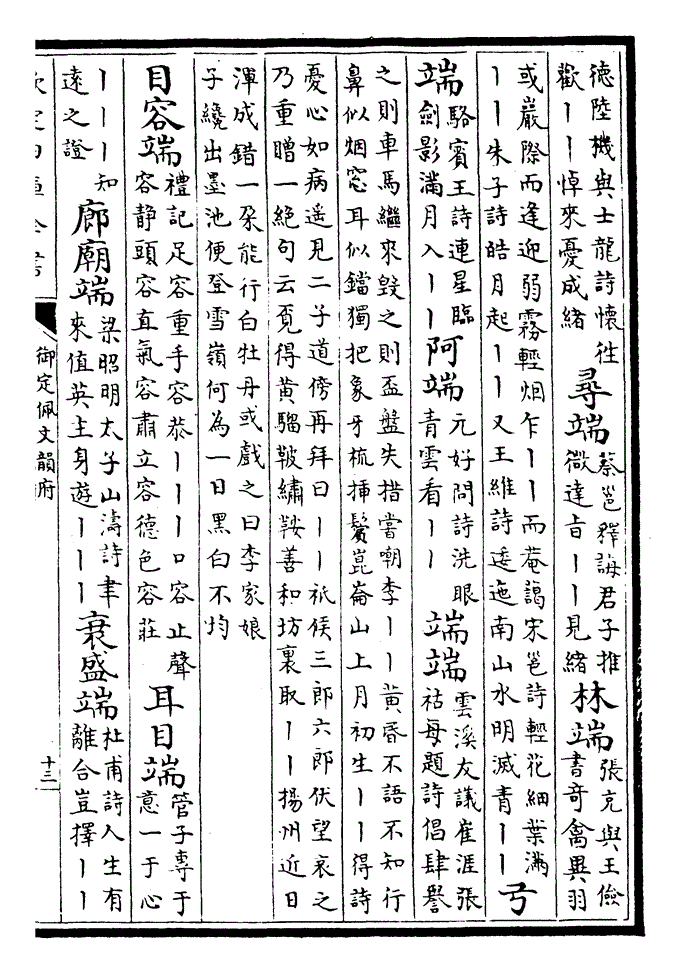 德陸機與士龍詩懷徃
歡丨丨悼來憂成緒
尋端
蔡邕釋誨君子推
微達㫖丨丨見緒
林端
張充與王儉
書奇禽異羽
或巖際而逢迎弱霧輕烟乍丨丨而菴藹宋邕詩輕花細葉滿
丨丨朱子詩皓月起丨丨又王維詩逶迤南山水明滅青丨丨
弓
端
駱賓王詩連星臨
劍影滿月入丨丨
阿端
元好問詩洗眼
青雲看丨丨
端端
雲溪友議崔涯張
祜每題詩倡肆譽
之則車馬繼來毀之則盃盤失措嘗嘲李丨丨黄昏不語不知行
鼻似烟窓耳似鐺獨把象牙梳揷鬢崑崙山上月初生丨丨得詩
憂心如病遥見二子道傍再拜曰丨丨祇候三郎六郎伏望哀之
乃重贈一絶句云覓得黄騮鞁繡鞍善和坊裏取丨丨揚州近日
渾成錯一朶能行白牡丹或戲之曰李家娘
子纔出墨池便登雪嶺何為一日黑白不均
目容端
禮記足容重手容恭丨丨丨口容止聲
容静頭容直氣容肅立容德色容莊
耳目端
管子專于
意一于心
丨丨丨知
逺之證
廊廟端
梁昭明太子山濤詩聿
來值英主身遊丨丨丨
衰盛端
杜甫詩人生有
離合豈擇丨丨
欽定四庫全書
御定佩文韻府
十三